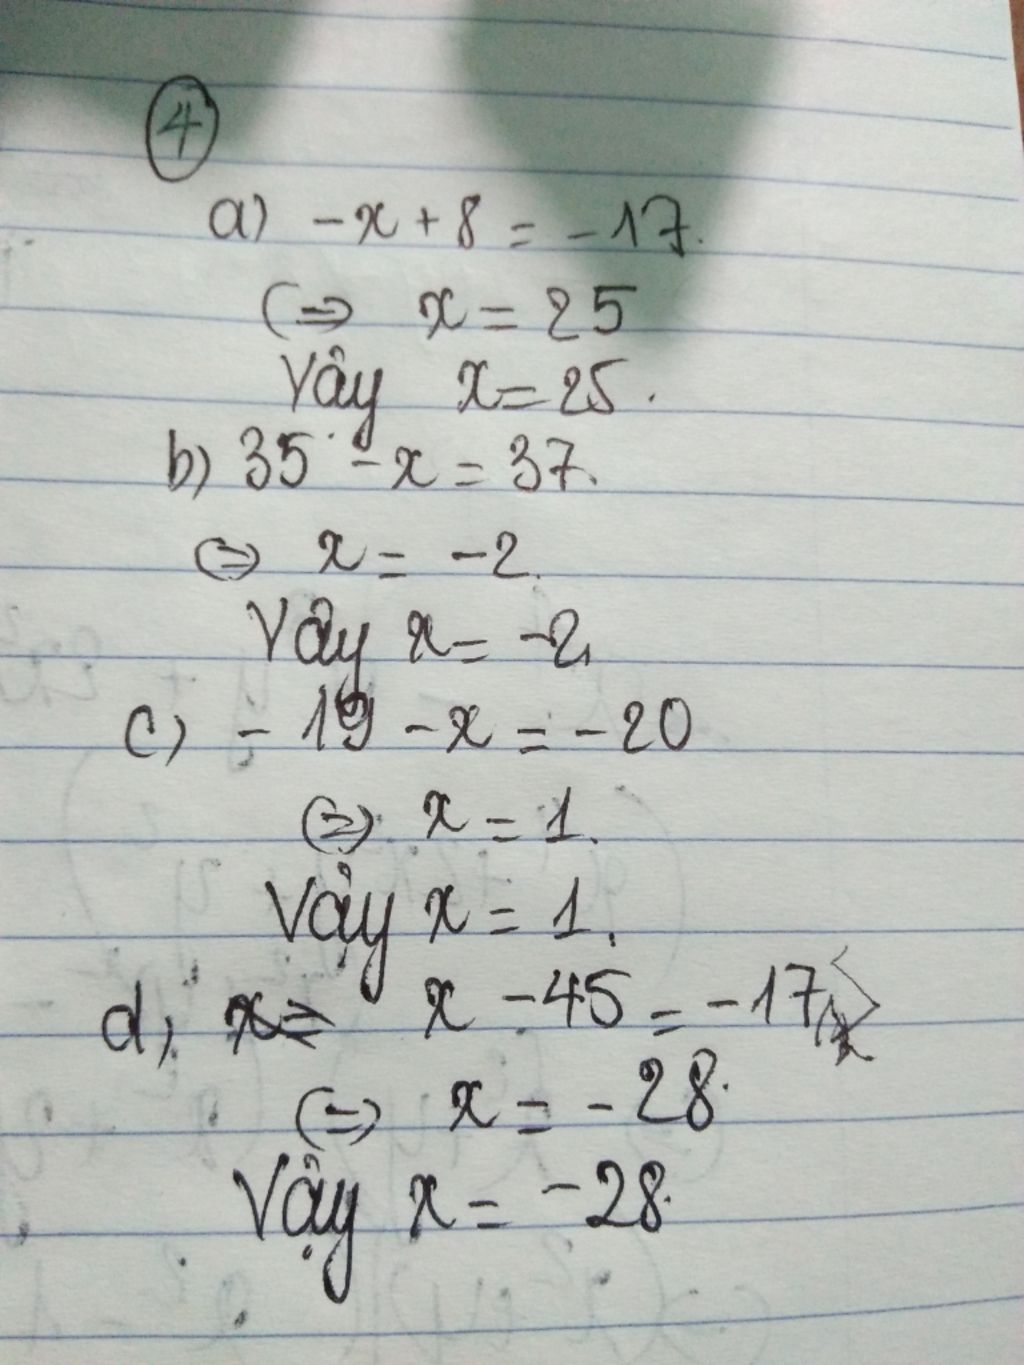 4
a) -x + 8 = -17.
(=) x = 25
Vậy x = 25.
b) 35 - x = 37.
(=) x = -2.
Vậy x = -2.
c) - 19 - x = -20
(=) x = 1.
Vậy x = 1.
d, x - 45 = -17
(=) x = -28.
Vậy x = -28.